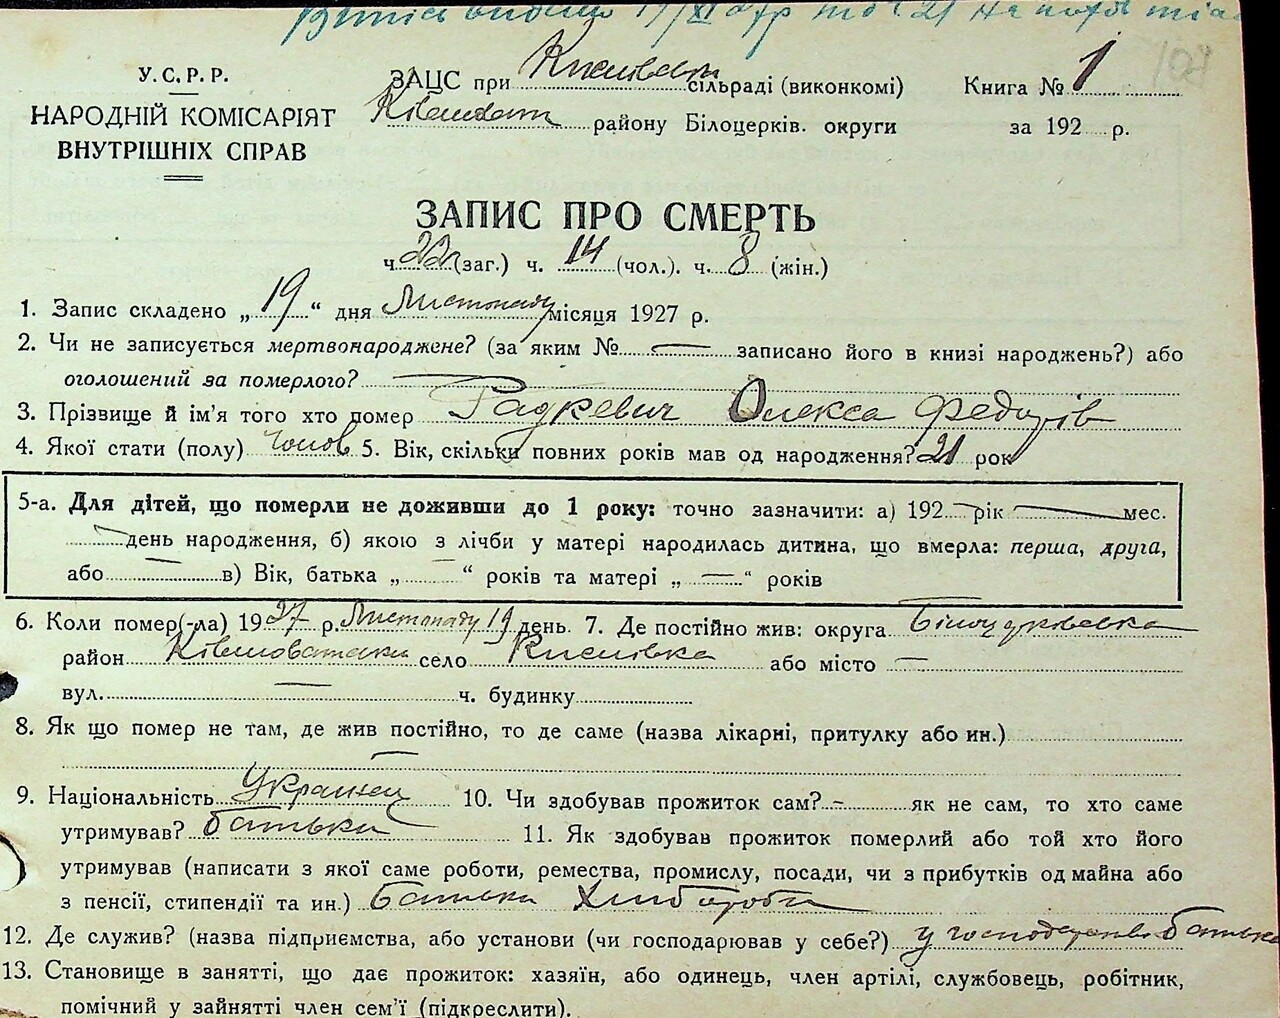 Витяг видано 19/XI 27р т. ч. 21 на
107
У.С.Р.Р.
НАРОДНІЙ КОМІСАРІЯТ
ВНУТРІШНІХ СПРАВ
ЗАЦС при Кислівськ сільраді (виконкомі)
Ківшоват районy Білоцерків. округи
Книга № 1
за 192 р.
ЗАПИС ПРО СМЕРТЬ
ч. 22 (заг.) ч. 14 (чол.). ч. 8 (жін.)
1. Запис складено „ 19 “ дня Листопаду місяця 1927 р.
2. Чи не записується мертвонароджене? (за яким № — записано його в книзі народжень?) або
оголошений за померлого? —
3. Прізвище й ім'я того хто помер Радкевич Олекса Федорів
4. Якої стати (полу) чолов 5. Вік, скільки повних років мав од народження? 21 рок
5-а. Для дітей, що померли не доживши до 1 року: точно зазначити: а) 192 — рік — мес.
— день народження, б) якою з лічби у матері народилась дитина, що вмерла: перша, друга,
або — в) Вік, батька „ — “ років та матері „ — “ років
6. Коли помер(-ла) 1927 р. Листопаду 19 день. 7. Де постійно жив: округа Білоцерківська
район Ківшоватськи село Кислівка або місто —
вул. — ч. будинку
8. Як що помер не там, де жив постійно, то де саме (назва лікарні, притулку або ин.)
—
9. Національність Українец 10. Чи здобував прожиток сам? - як не сам, то хто саме
утримував? батьки 11. Як здобував прожиток померлий або той хто його
утримував (написати з якої саме роботи, ремества, промислу, посади, чи з прибутків од майна або
з пенсії, стипендії та ин.) Батьки Хлібороби
12. Де служив? (назва підприємства, або установи (чи господарював у себе?) у господарстві батька
13. Становище в занятті, що дає прожиток: хазяїн, або одинець, член артілі, службовець, робітник,
помічний у зайнятті член сем'ї (підкреслити).